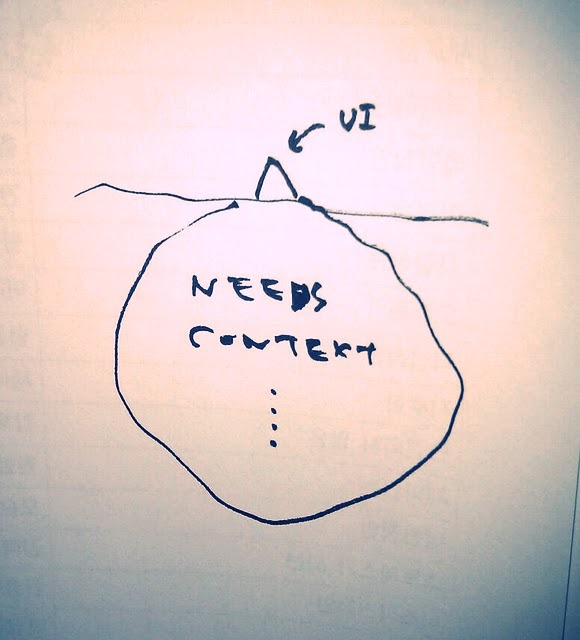 UI
NEEDS
CONTEXT
....